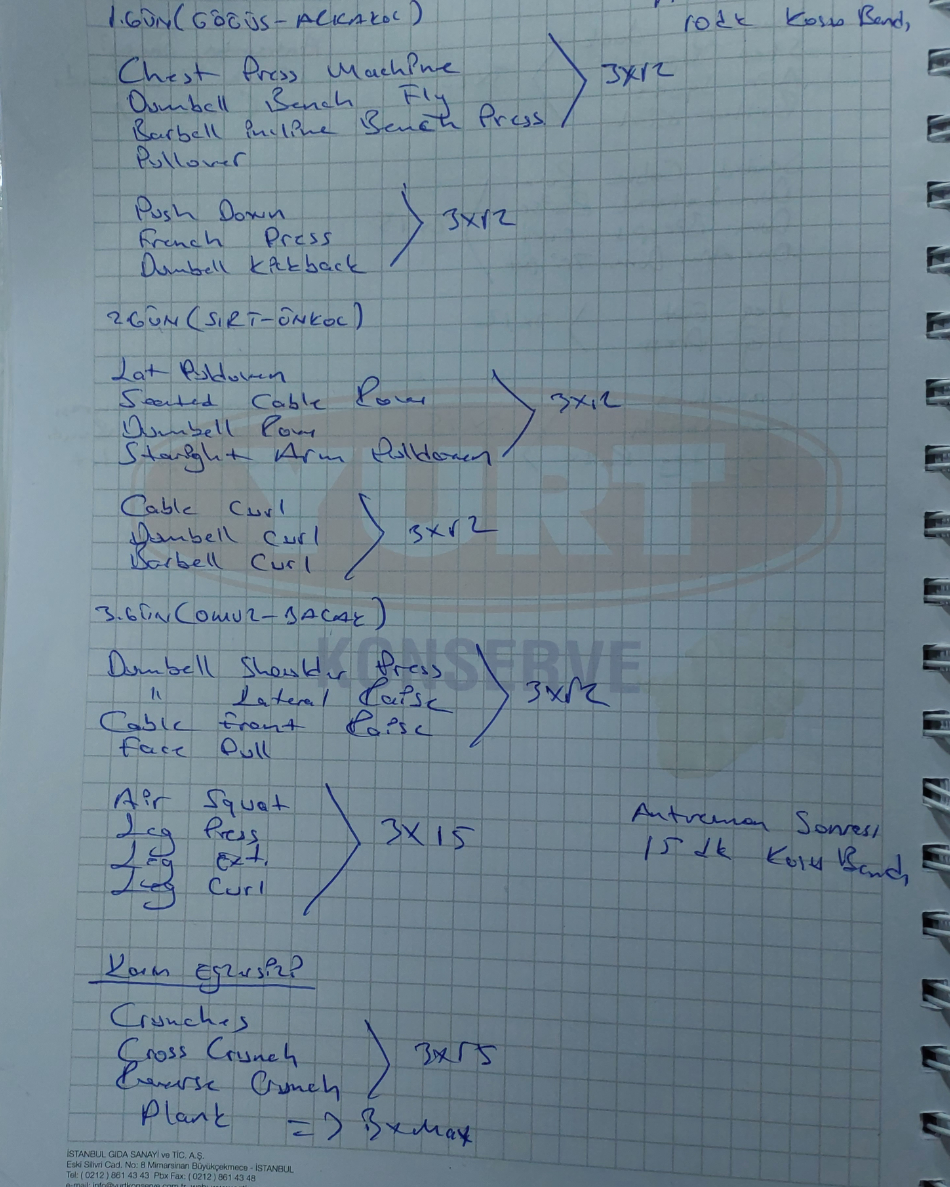 1.GÜN(GÖĞÜS-ARKAKOL)
10dk Kosu Bandı
Chest Press Machine
Dumbell Bench Fly
Barbell İncline Bench Press
Pullover
3x12
Push Down
French Press
Dumbell Kickback
3x12
2.GÜN(SIRT-ÖNKOL)
Lat Pulldown
Seated Cable Row
Dumbell Row
Staright Arm Pulldown
3x12
Cable Curl
Dumbell Curl
Barbell Curl
3x12
3.GÜN(OMUZ-BACAK)
Dumbell Shoulder Press
" Lateral Raise
Cable Front Raise
Face Pull
3x12
Air Squat
Leg Press
Leg Ext.
Leg Curl
3x15
Antreman Sonrası
15 dk Kosu Bandı
Karın Egzersizi
Crunches
Cross Crunch
Reverse Crunch
3x15
Plank => 3xMax
YURT
KONSERVE
İSTANBUL GIDA SANAYİ ve TİC. A.Ş.
Eski Silivri Cad. No: 8 Mimarsinan Büyükçekmece - İSTANBUL
Tel: ( 0212 ) 861 43 43 Pbx Fax: ( 0212 ) 861 43 48